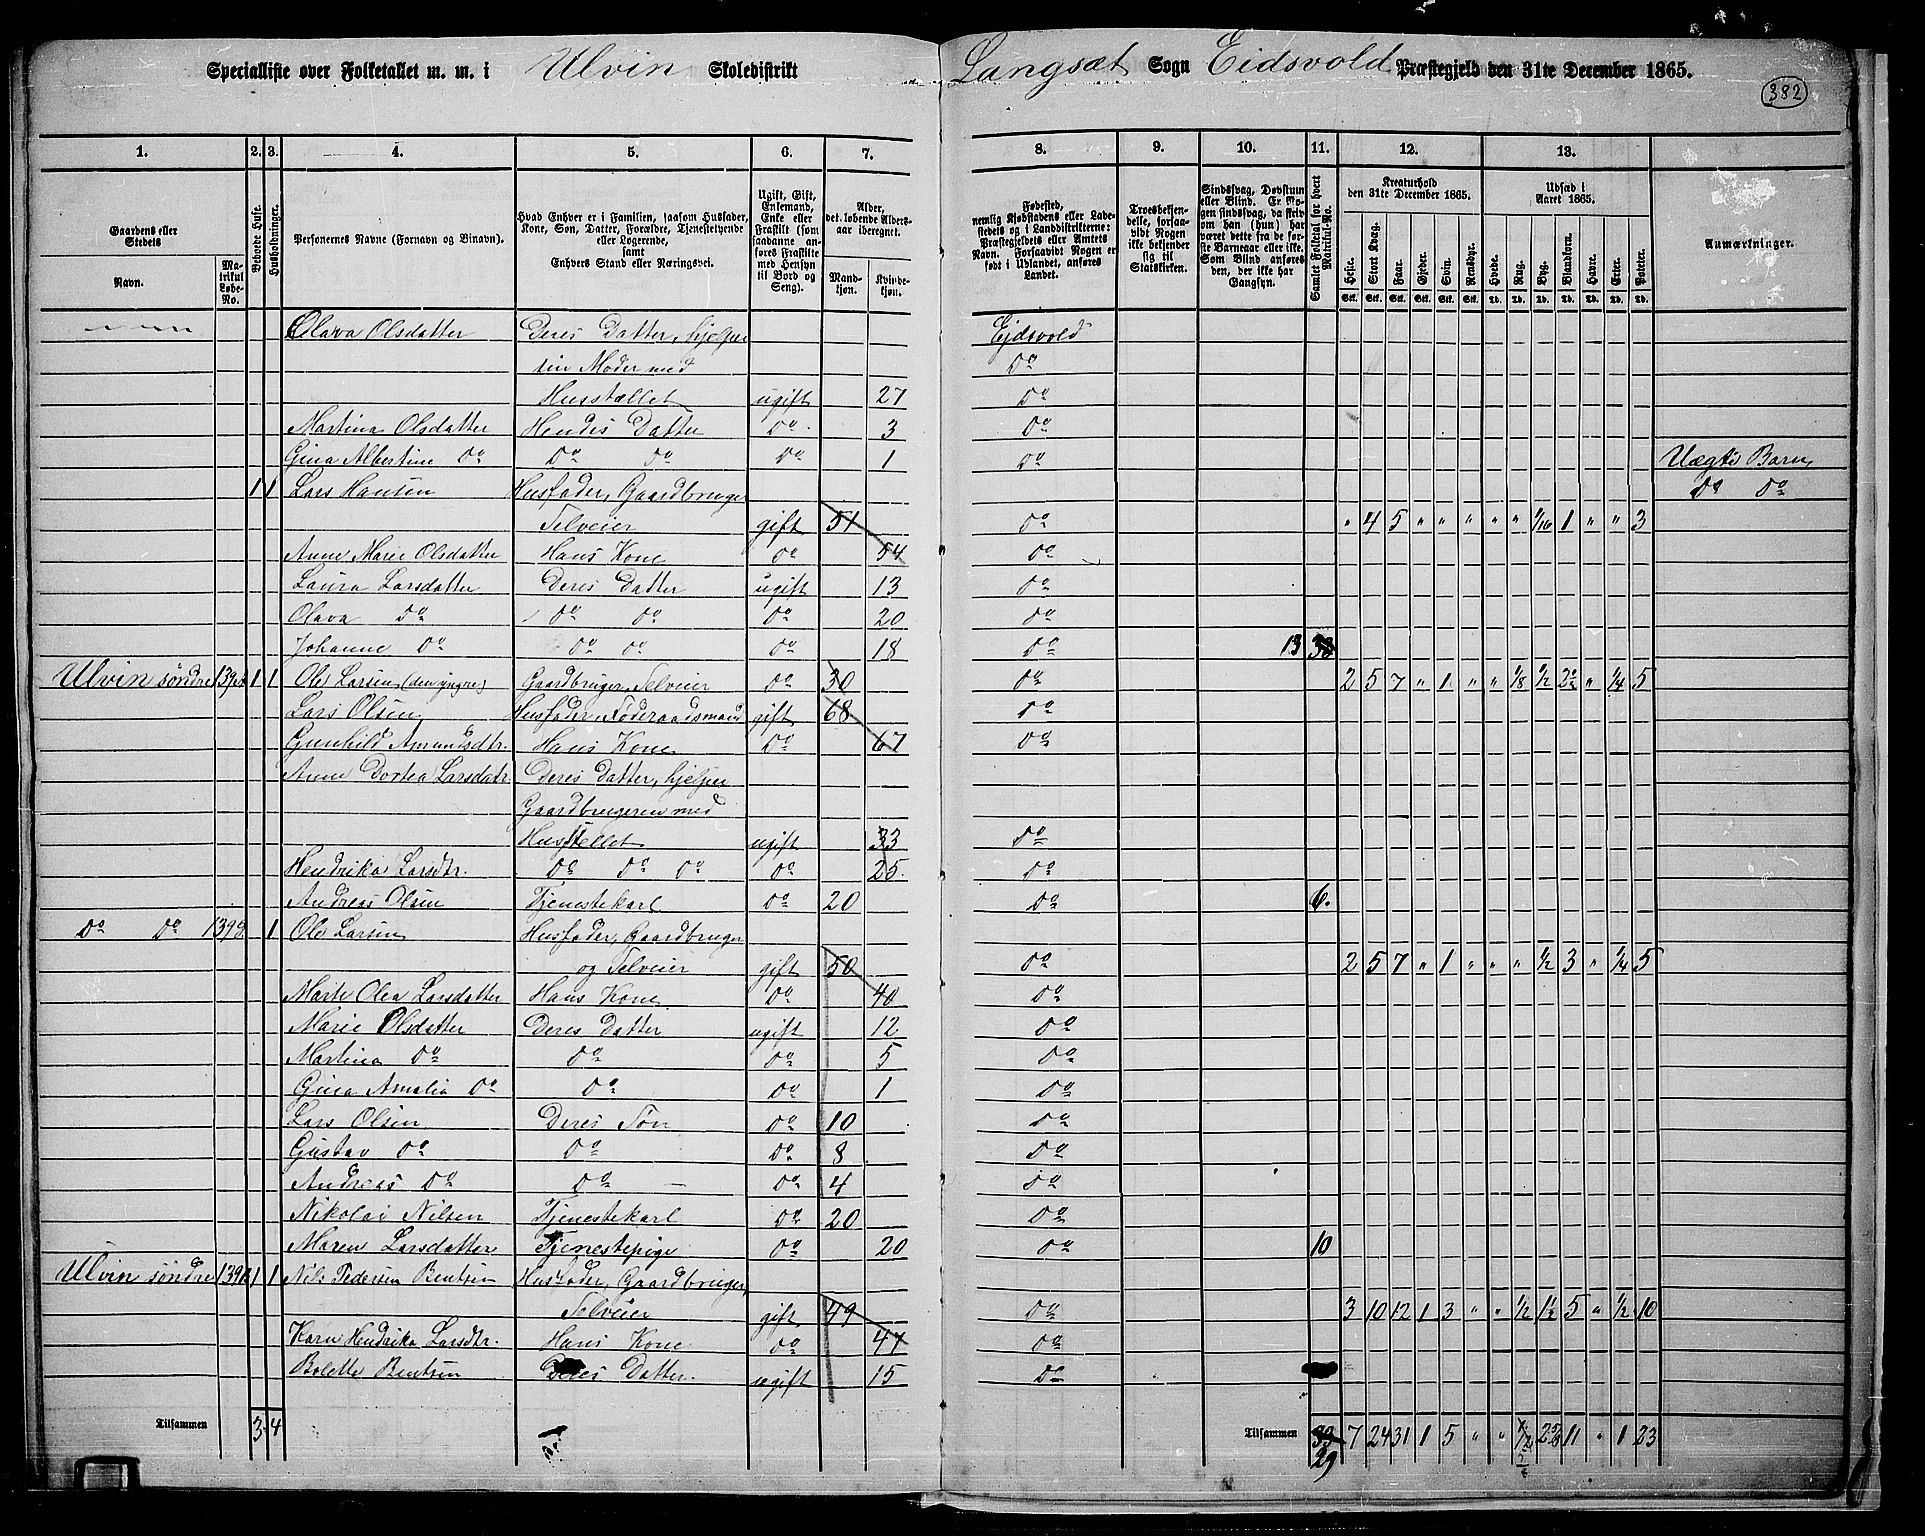 Specialliste over Folketallet m. m. i Ulvin Skoledistrikt Langsæt Sogn Eidsvold Præstegjeld den 31te December 1865.
382
1. 2. 3. 4. 5. 6. 7. 8. 9. 10. 11. 12. 13.
Gaardens eller Stedets
Navn.
Matrikul Løbe-No.
Beboede Huse.
Husholdninger.
Personernes Navne (Fornavn og Binavn).
Hvad Enhver er i Familien, saasom Husfader, Kone, Søn, Datter, Forældre, Tjenestetyende eller Logerende, samt Enhvers Stand eller Næringsvei.
Ugift, Gift, Enkemand, Enke eller Fraskilt (som saadanne anføres Fraskilte med Hensyn til Bord og Seng).
Alder, det løbende Alders-aar iberegnet.
Mandkjøn. Kvindekjøn.
Fødested, nemlig Kjøbstadens eller Ladestedets og i Landdistrikterne: Præstegjeldets eller Amtets Navn. Forsaavidt Nogen er født i Udlandet, anføres Landet.
Troesbekjendelse, forsaavidt Nogen ikke bekjender sig til Statskirken.
Sindssvag, Døvstum eller Blind. Er Nogen sindssvag, da skriv om han (hun) har været dette fra de første Barneaar eller ikke. Som Blind anføres den, der ikke har Gangsyn.
Samlet Folketal for hvert Matrikul-No.
Kreaturhold den 31te December 1865.
Heste. Stort Kvæg. Faar. Gjeder. Svin. Rensdyr.
Udsæd i Aaret 1865.
Hvede. Rug. Byg. Blandkorn. Havre. Erter. Poteter.
Anmærkninger.
Olava Olsdatter Deres Datter, hjelper Ejdsvold
sin Moder med Do
Husstællet ugift 27 Do
Martina Olsdatter Hendes Datter Do 3 Do
Gina Albertine Do Do Do Do 1 Do Uægte Barn
1 1 Lars Hansen Husfader, Gaardbruger Do Do
Selveier gift 51 Do " 4 5 " " " " " 1/16 1 " " 3
Anne Marie Olsdatter Hans Kone Do 54 Do
Laura Larsdatter Deres Datter ugift 13 Do
Olava Do Do Do Do 20 Do
Johanne Do Do Do Do 18 Do 13
Ulvin søndre 1 1 Ole Larsen (den yngre) Gaardbruger, Selveier Do 30 Do 2 5 7 " 1 " " 1/8 1/2 " 1/4 5
Lars Olsen Husfader, Føderaadsmand gift 68 Do
Gunhild Amundsdtr. Hans Kone Do 67 Do
Anne Dortea Larsdatr. Deres Datter, hjelper
Gaardbrugeren med
Husstellet ugift 33 Do
Hendrika Larsdtr. Do Do Do Do 25 Do
Andreas Olsen Tjenestekarl Do 20 Do 6.
Do Do 1 Ole Larsen Husfader, Gaardbruger
og Selveier gift 50 Do 2 5 7 " 1 " " " 1/2 3 " 1/4 5
Marte Olea Larsdatter Hans Kone Do 40 Do
Marie Olsdatter Deres Datter ugift 12 Do
Martina Do Do Do 5 Do
Gina Amalia Do Do Do 1 Do
Lars Olsen Deres Søn Do 10 Do
Gustav Do Do Do 8 Do
Andreas Do Do Do 4 Do
Nikolai Nilsen Tjenestekarl Do 20 Do
Maren Larsdatter Tjenestepige Do 20 Do 10
Ulvin søndre 1 1 Nils Pedersen Bentsen Husfader, Gaardbruger,
Selveier gift 49 Do 3 10 12 1 3 " " 1/2 1 1/2 5 " 1/2 10
Karn Hendrika Larsdtr. Hans Kone Do 47 Do
Bolette Bentsen Deres Datter ugift 15 Do
Tilsammen 3 4 Tilsammen 33 7 24 31 1 5 " " 2 5/8 11 " 1 23
29